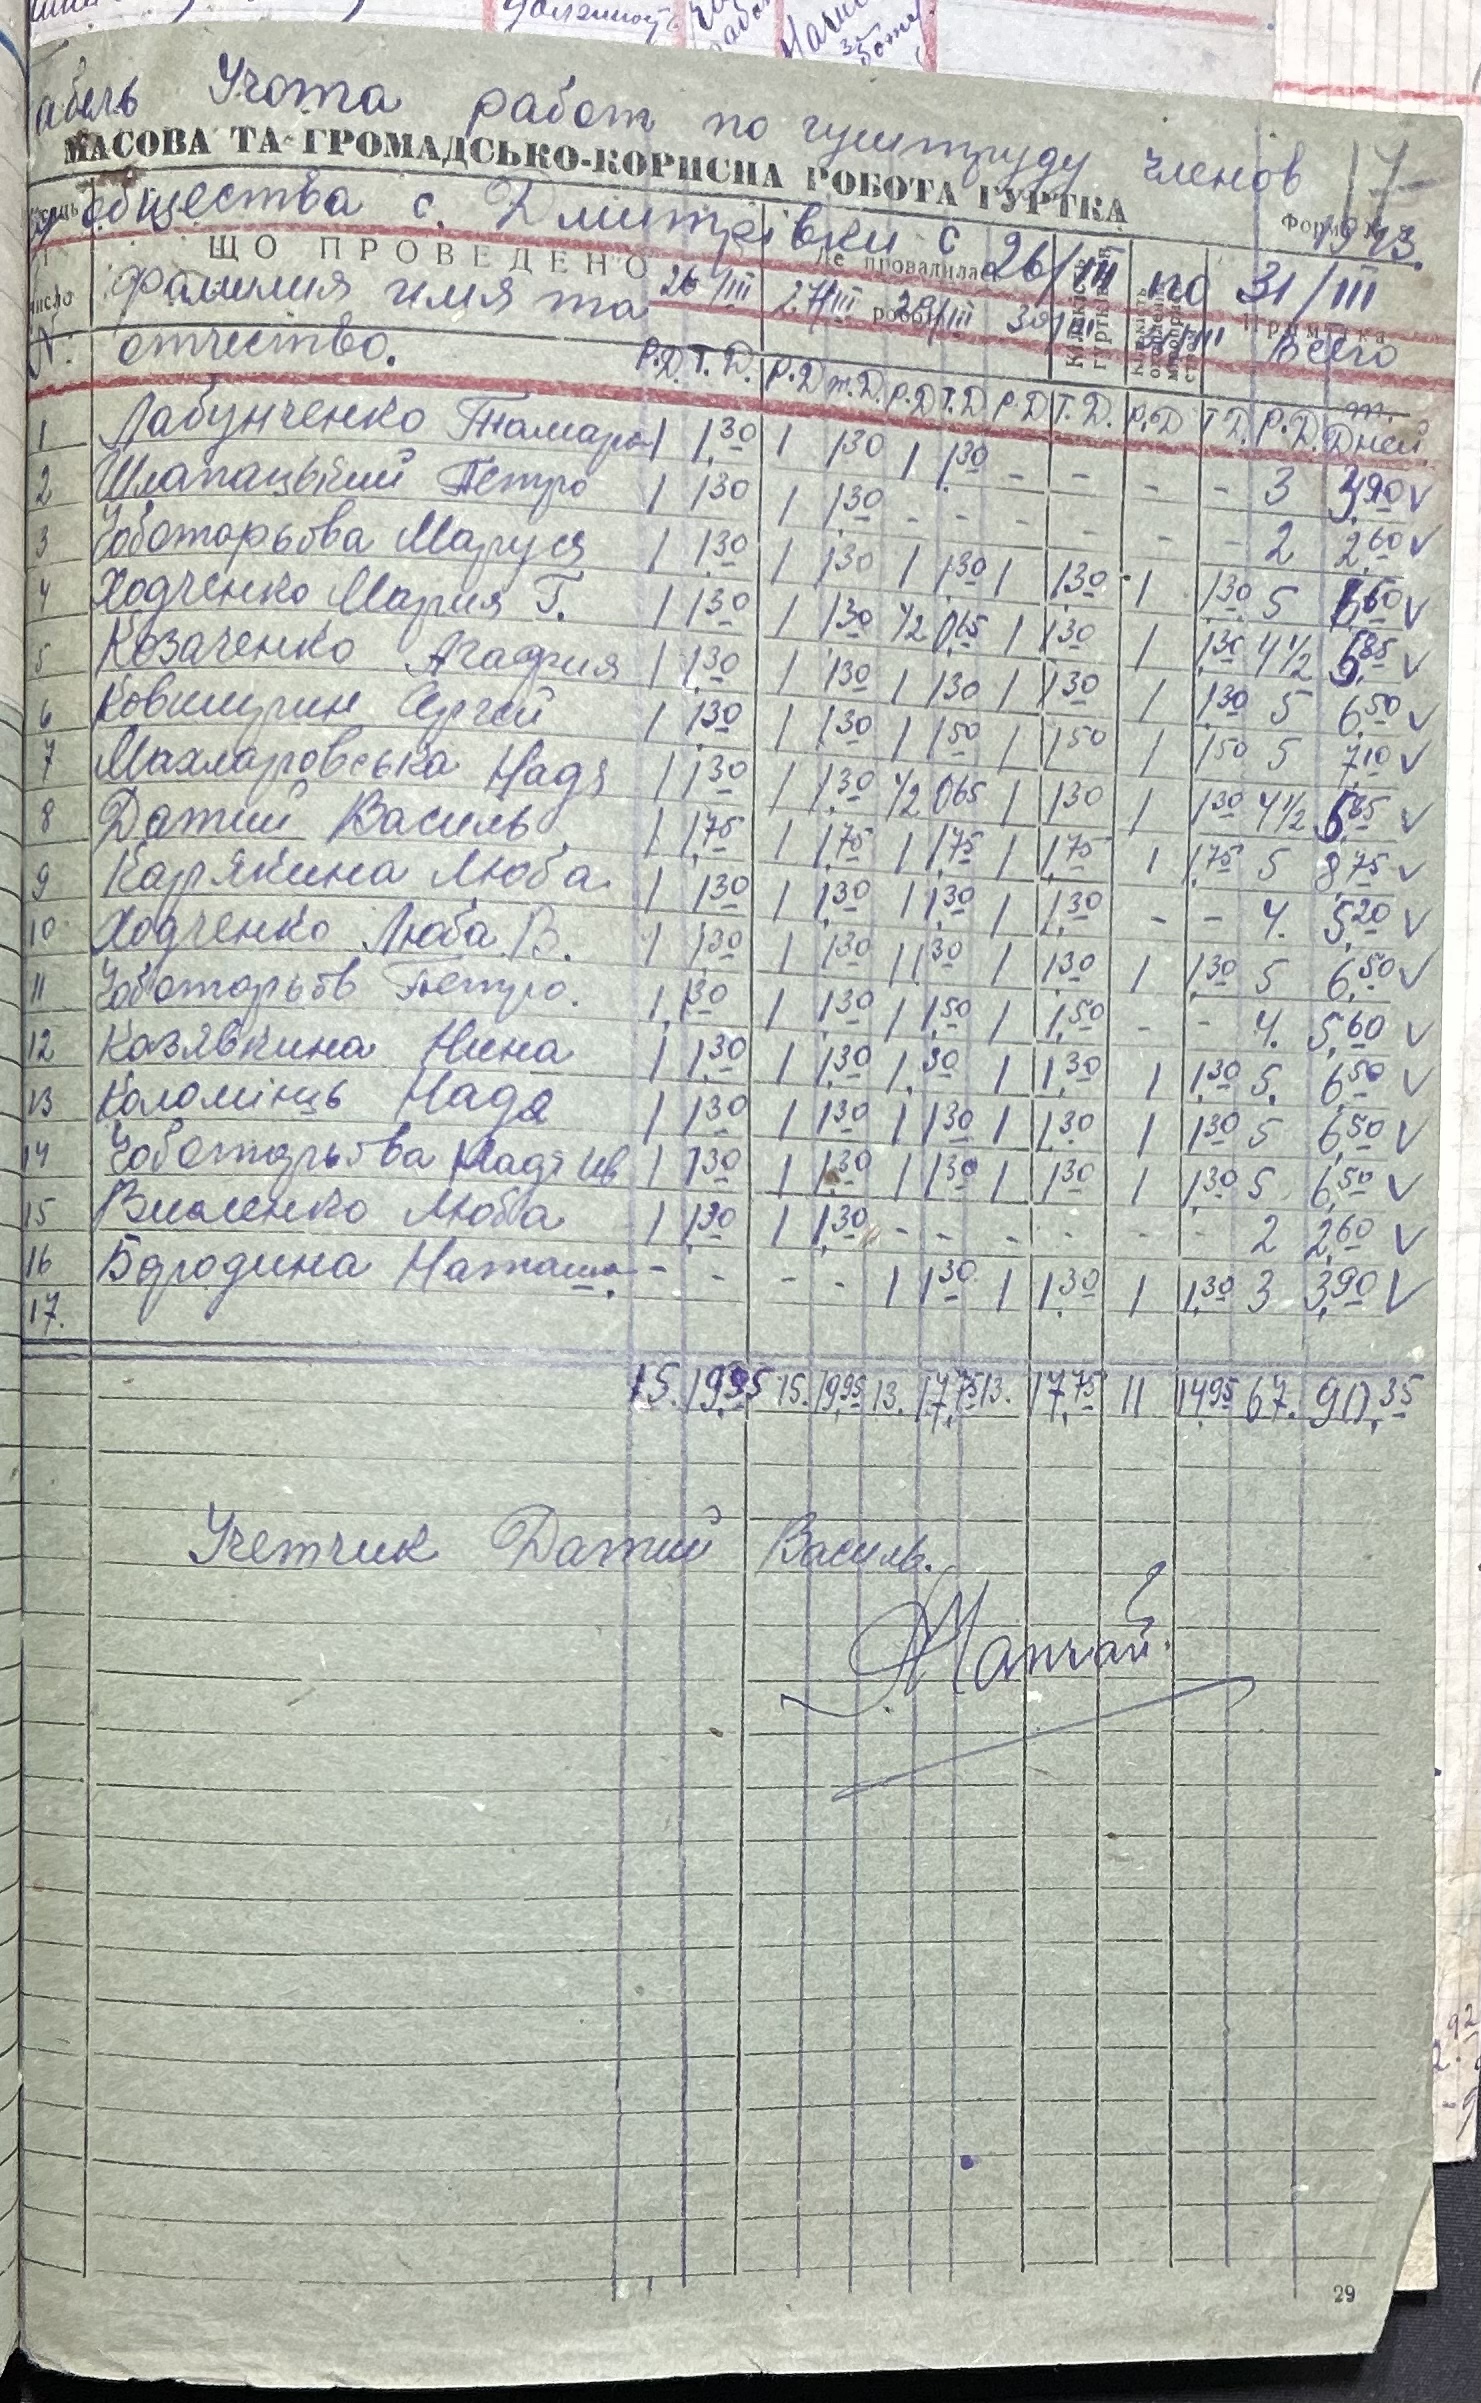 должность
абель Учота работ по гужтруду членов 17
МАСОВА ТА ГРОМАДСЬКО-КОРИСНА РОБОТА ГУРТКА
общества с. Дмитрівки с 26/III по 31/III 1943.
ЩО ПРОВЕДЕНО
Де провадилась робота
Примітка
число
Фамилия имя та 26/III 27/III 29/III 30/III 31/III Всего
№ отчество. Р.Д. Т.Д. Р.Д т.Д. Р.Д Т.Д. Р.Д Т.Д. Р.Д Т.Д. Р.Д. Дней
1 Лабунченко Тамара 1 1,30 1 1 30 1 1,30 - - - - 3 3,90 v
2 Шлапацький Петро 1 1 30 1 1,30 - - - - - - 2 2,60 v
3 Чоботарьова Маруся 1 1,30 1 1 30 1 1,30 1 1,30 1 1,30 5 6,50 v
4 Ходченко Мария Г. 1 1 30 1 1 30 1/2 0,65 1 1 30 1 1,30 4 1/2 5,85 v
5 Козаченко Агафия 1 1,30 1 1,30 1 1 30 1 1 30 1 1,30 5 6,50 v
6 Ковширин Сергей 1 1,30 1 1 30 1 1 50 1 1 50 1 1 50 5 7,10 v
7 Махларовська Надя 1 1,30 1 1,30 1/2 065 1 1 30 1 1 30 4 1/2 5,85 v
8 Датий Василь 1 1,75 1 1,75 1 1 75 1 1,75 1 1,75 5 8,75 v
9 Карякина Люба. 1 1 30 1 1,30 1 1,30 1 1,30 - - 4. 5,20 v
10 Ходченко Люба В. 1 1 30 1 1 30 1 1 30 1 1,30 1 1,30 5 6,50 v
11 Чоботарьов Петро. 1 1 30 1 1,30 1 1,50 1 1,50 - - 4. 5,60 v
12 Козявкина Нина 1 1,30 1 1,30 1,30 1 1,30 1 1,30 5. 6,50 v
13 Коломіець Надя 1 1 30 1 1 30 1 1 30 1 1,30 1 1,30 5 6,50 v
14 Чоботарьова Надя Ив 1 1 30 1 1,30 1 1 30 1 1,30 1 1,30 5 6,50 v
15 Виленко Люба 1 1,30 1 1,30 - - - - - - 2 2,60 v
16 Бородина Наташа. - - - - 1 1,30 1 1,30 1 1,30 3 3,90 v
17.
15. 19,95 15. 19,95 13. 17,75 13. 17,75 11 14,95 67. 90,35
Учетчик Датий Василь.
29